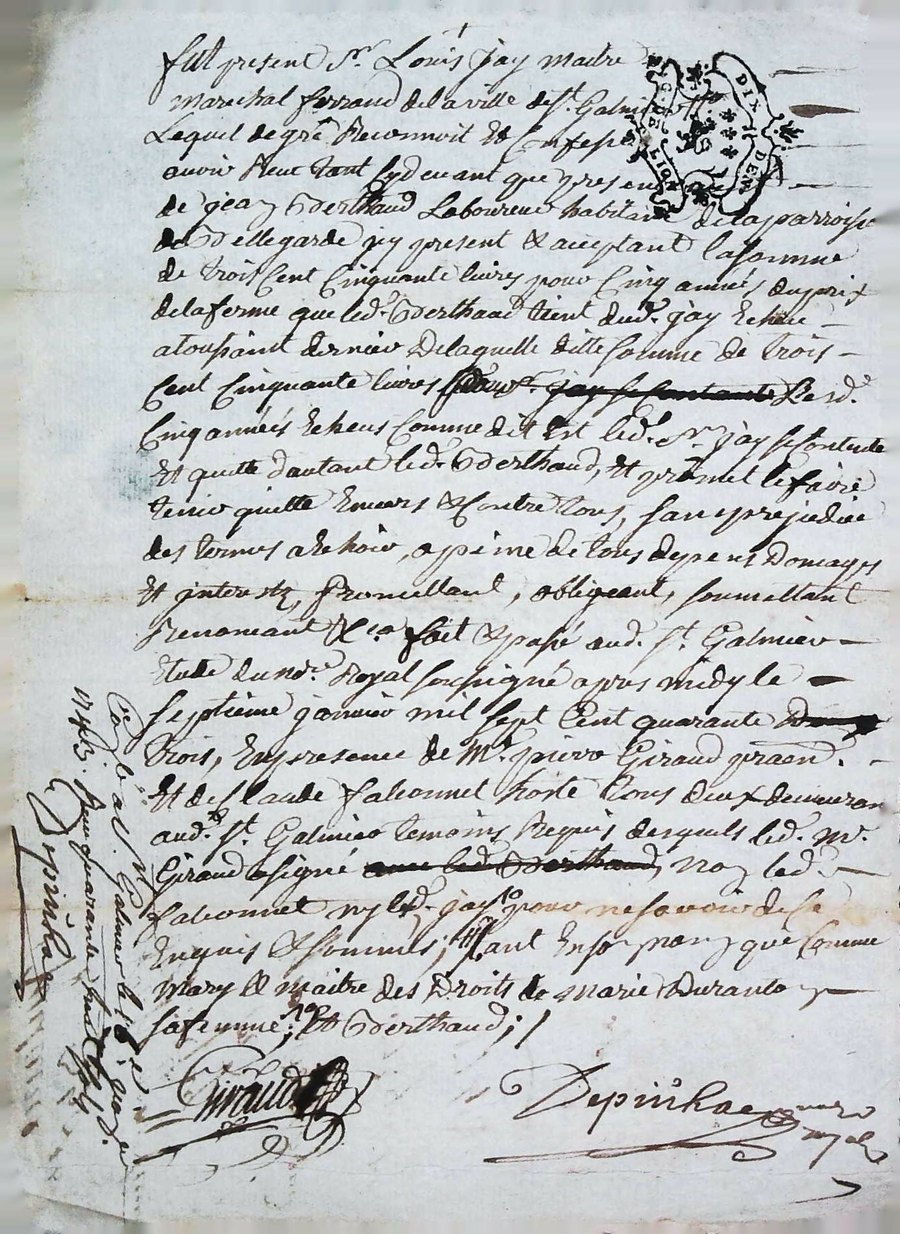 fut present Sr. Louis jay maitre
marechal ferrand de la ville de St. Galmier
Lequel de gré Reconnoit et Confesse
avoir Receu tant cydevant que presen
de jean Berthaud Laboureur habitant de la parroisse
de Bellegarde jcy present & acceptant la somme
de trois Cent Cinquante livres pour Cinq années du prix
de la ferme que led. Berthaud tient dud. jay Echeue
a toussaint dernier De laquelle ditte somme de trois
Cent Cinquante livres jay se Contente Lesd.
Cinq années Echeus Comme dit Est led. Sr. jay se Contente
Et quitte d'autant led. Berthaud, et promet le faire
tenir quitte Envers & Contre tous, sans prejudice
des termes a Echoir, a peine de tous depens Domages
Et interests, promettant, obligeant, soumettant
Renonceant &ca fait & passé aud. St. Galmier
Etude du nore. Royal soussigné apres midy le
septieme janvier mil sept Cent quarante
trois, En presence de Me. pierre Giraud
Et de Claude falconnet hoste tous deux demeuran
aud. St. Galmier temoins Requis desquels led. Me.
Giraud a signé avec led. Berthaud, non led.
falconnet ny led. jay pour ne savoir de ce
Enquis & sommés; tant En son nom que Comme
mary & maitre des Droits de marie Durante
sa femme; Berthaud;
Giraud
Depinhac
DIX DEN
LION
Con.lé a St. Galmier le 16e.
1743. Reçu quarante huit sols
Depinhac